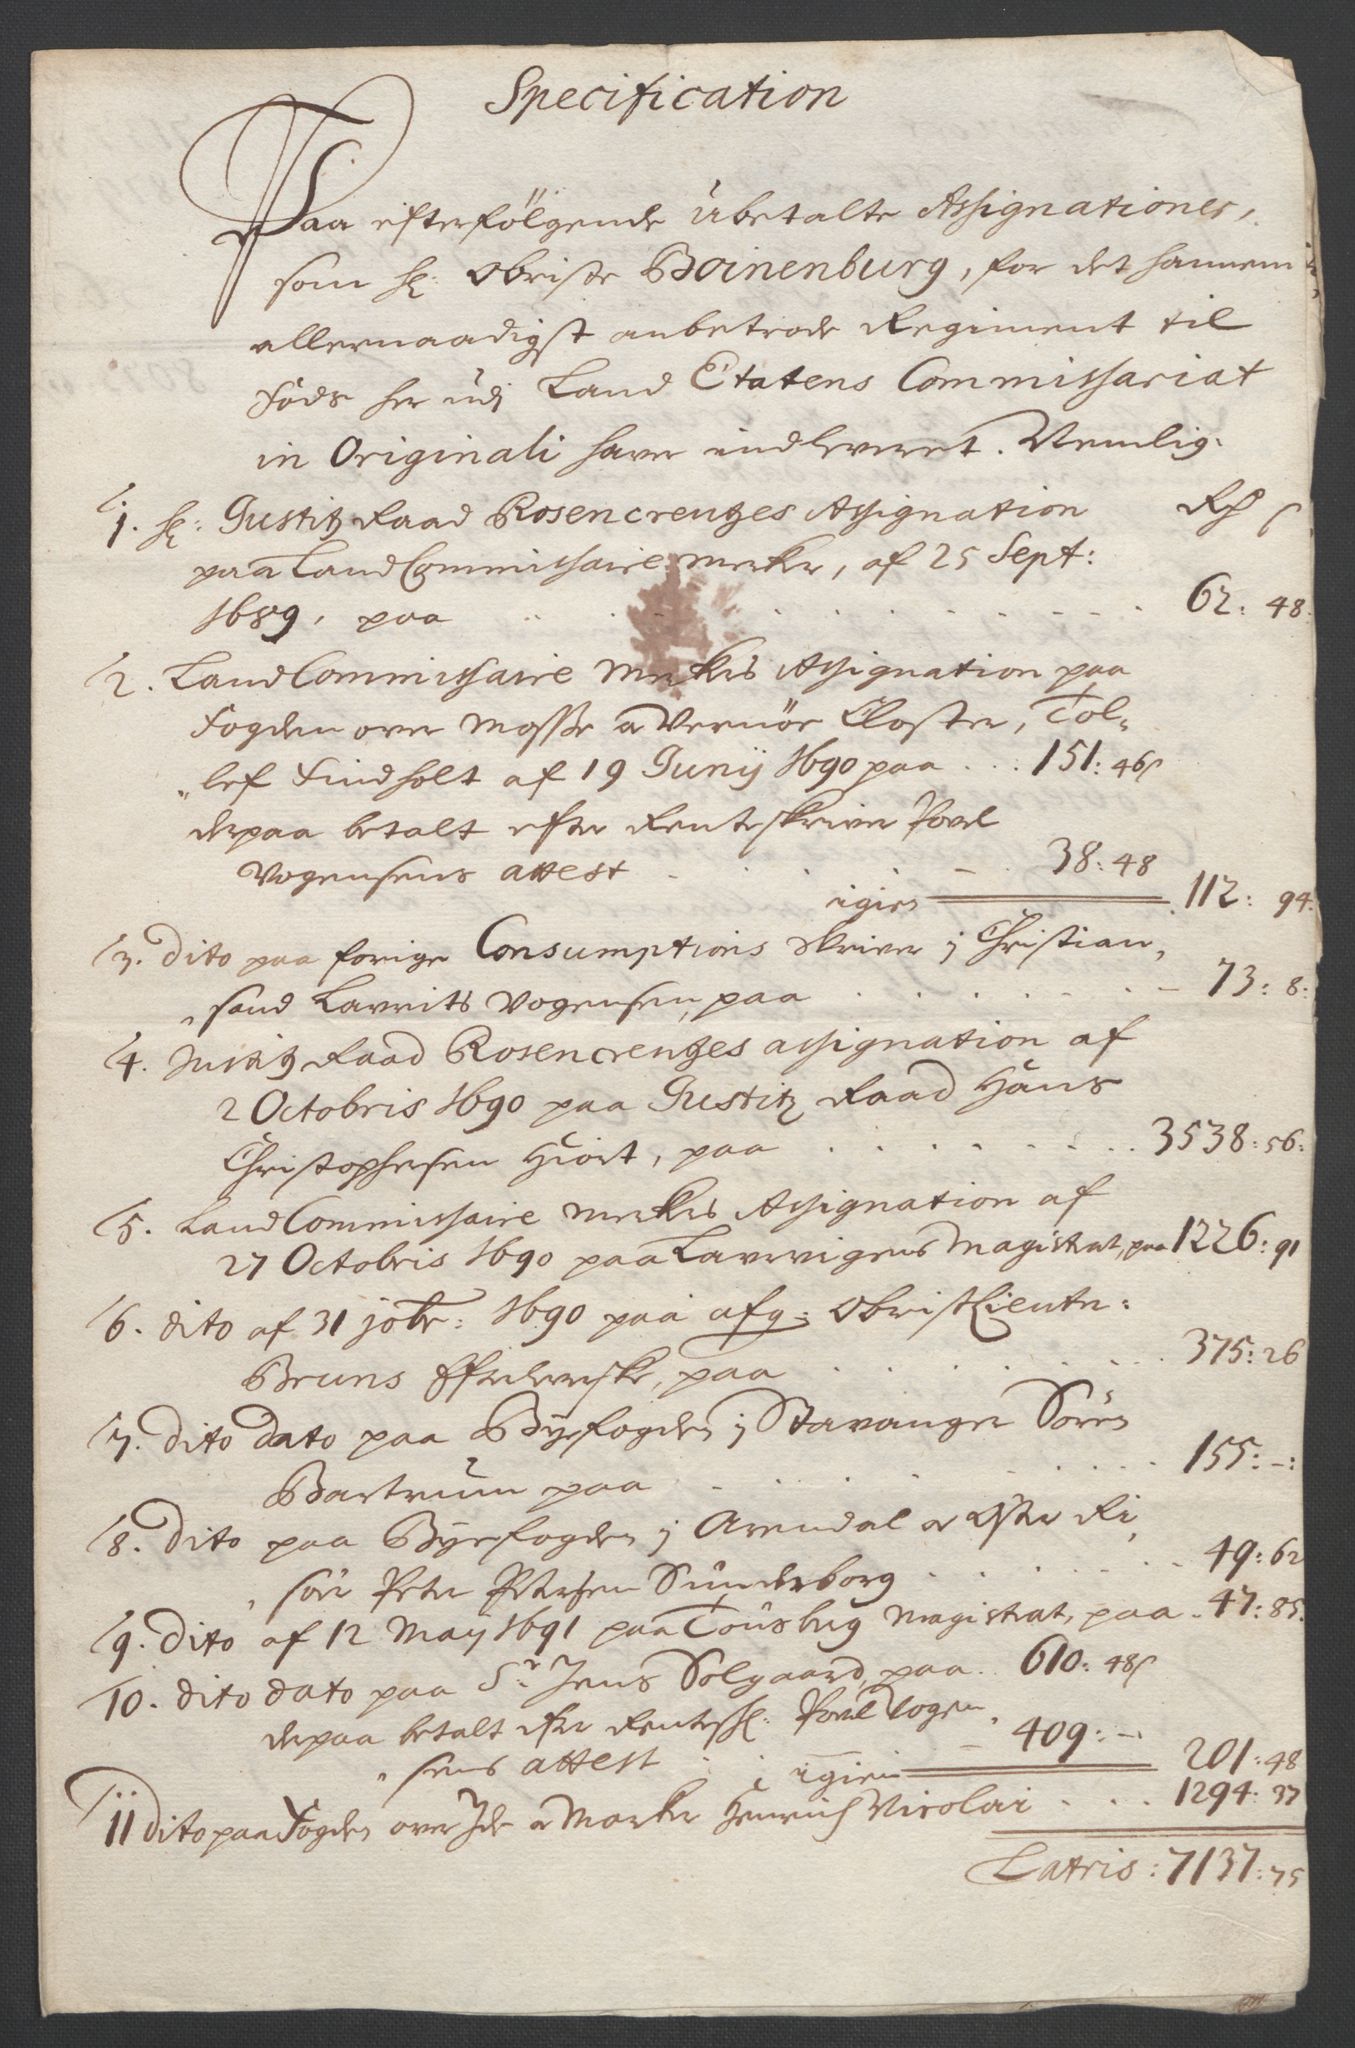 Specification
Paa efterfölgende ubetalte Assignationer,
som Hr: Obriste Boinenburg, for det hannem
allernaadigst anbetrode Regiment til
Fods her udj Land Etatens Commissariat
in Originali haver indleveret. Nemlig:
1. Hr: Justitz Raad Rosencrentzes Assignation Rd s
paa Land Commissaire Merker, af 25 Sept:
1689, paa . . . . . . . . 62: 48.
2. Land Commissaire Merkers Assignation paa
Fogden over Mosse a Vernöe Closter, Tol-
"lef Findholt af 19 Junij 1690 paa . . . 151: 46s
derpaa betalt efter Renteskriver Povel
Vogensens attest . . . . 38: 48
igien 112: 94:
3. dito paa forige Consumptions skriver j Christian,
"sand Laurits Vogensen, paa . . . . . . 73: 8:
4. Justitz Raad Rosencrentzes assignation af
2 Octobris 1690 paa Justitz Raad Hans
Christophersen Hiort, paa . . . . . . . 3538: 56:
5. Land Commissaire Merkers Assignation af
27 Octobris 1690 paa Laurvigens Magistrat, paa 1226: 91
6. dito af 31 jobr: 1690 paa afg: Obristlieutn:
Bruns Efterleverske, paa . . . . . . . 375: 26
7. dito dato paa Byefogden j Stavanger Sören
Bartrum paa . . . . . . . 155: -:
8. dito paa Byefogden j Arendal a Öster Ri,
"söer Peter Petersen Sunderborg . . . . . . 49: 62
9. dito af 12 Maij 1691 paa Tönsberg Magistrat, paa . 47: 85.
10. dito dato paa Sr. Jens Solgaard, paa . . 610: 48s
derpaa betalt efter Rentesk: Povel Vogen,
"sens attest . . . 409: -
igien 201: 48
11 dito paa Fogden over Ide a Marker Henrich Nicolai . . . 1294: 37
Latris: 7137: 75